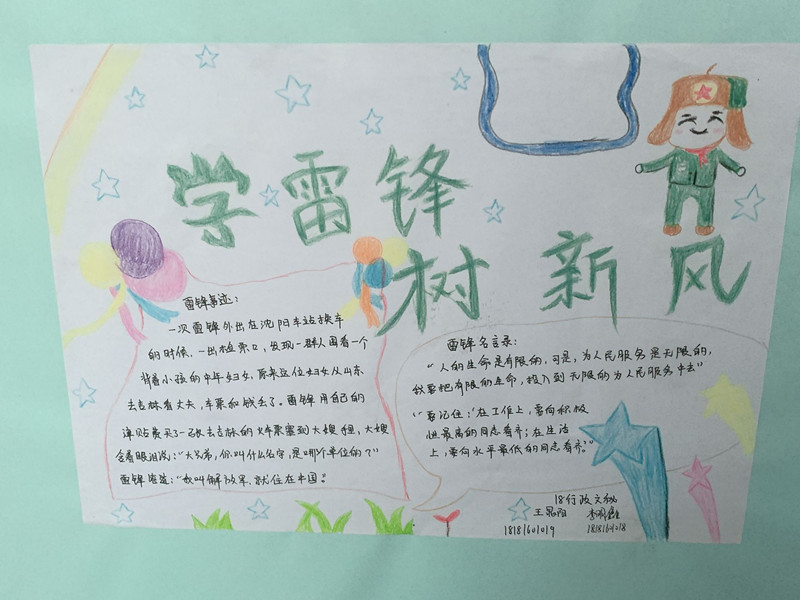 学雷锋
树新风
雷锋事迹:
一次雷锋外出在沈阳车站换车
的时候,一出检票口,发现一群人围看一个
背着小孩的中年妇女,原来这位妇女从山东
去吉林看丈夫,车票和钱丢了。雷锋用自己的
津贴费买了一张去吉林的火车票塞到大嫂手里,大嫂
含着眼泪说:“大兄弟,你叫什么名字,是哪个单位的?”
雷锋笑道:“我叫解放军,就住在中国。”
雷锋名言录:
“人的生命是有限的,可是,为人民服务是无限的,
我要把有限的生命,投入到无限的为人民服务中去”
“要记住:‘在工作上,要向积极
性最高的同志看齐;在生活
上,要向水平最低的同志看齐。’”
18行政文秘
王昆阳
18181601019
18181601018